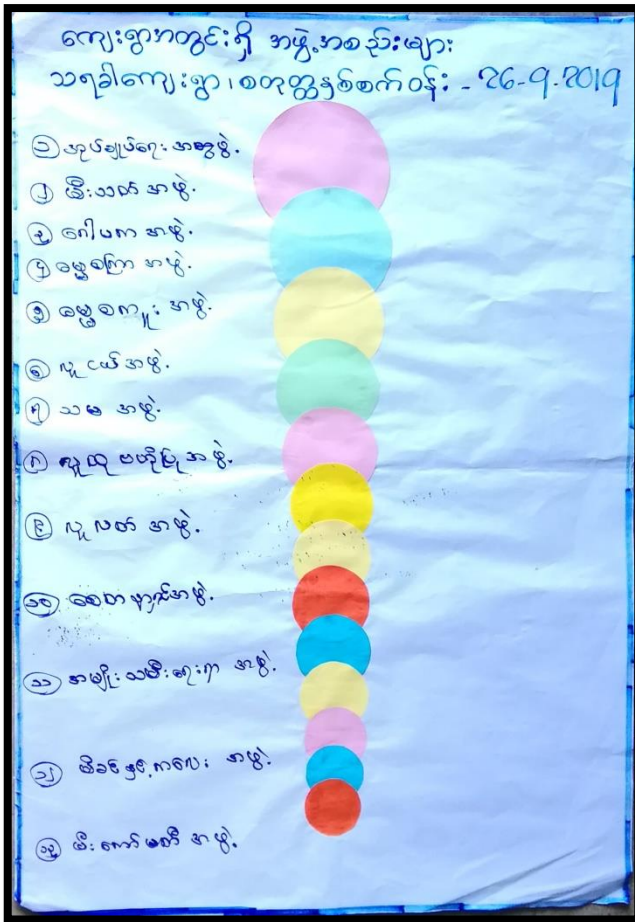 ကျေးရွာအတွင်းရှိ အဖွဲ့အစည်းများ
သရခါကျေးရွာ၊ စတုတ္ထနှစ်စက်ဝန်း - 26-9-2019
၁ အုပ်ချုပ်ရေး အဖွဲ့.
၂ မီးသတ် အဖွဲ့.
၃ ဂေါပက အဖွဲ့.
၄ ဓမ္မစကြာ အဖွဲ့.
၅ ဓမ္မစကူး အဖွဲ့.
၆ လူငယ် အဖွဲ့.
၇ သမ အဖွဲ့.
၈ လူထုဗဟိုပြု အဖွဲ့.
၉ လူလတ် အဖွဲ့.
၁၀ စေတနာ့ အဖွဲ့.
၁၁ အမျိုးသမီးရေးရာ အဖွဲ့.
၁၂ မိခင်နှင့်ကလေး အဖွဲ့.
၁၃ မီးကော်မတီ အဖွဲ့.